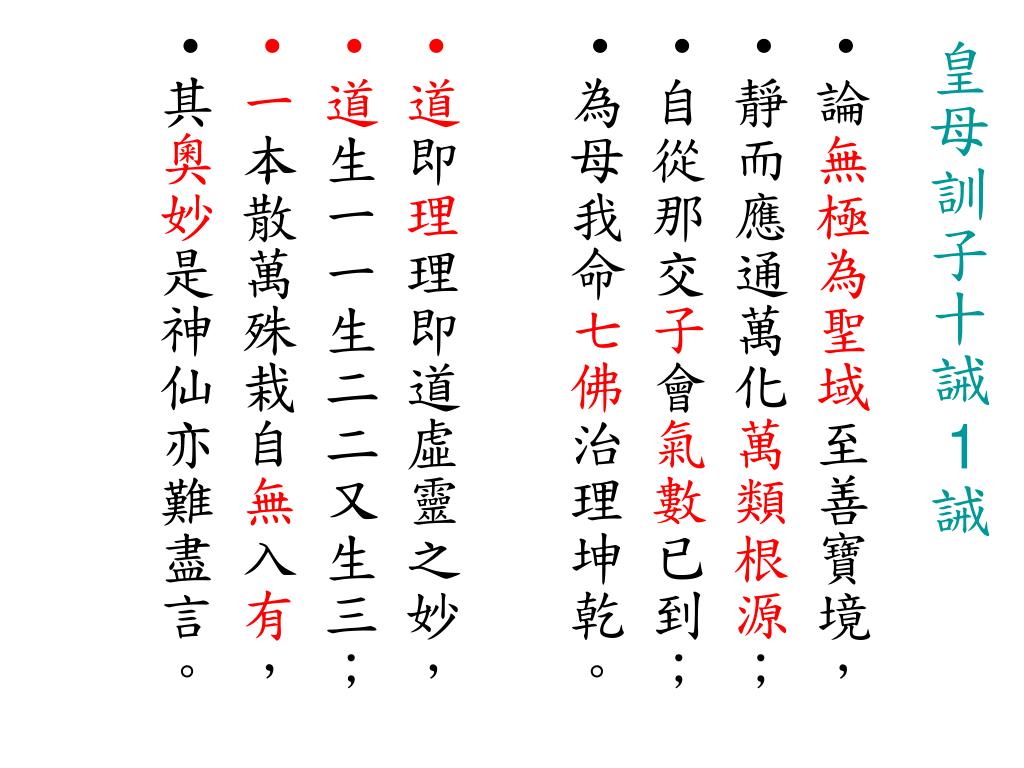 皇母訓子十誡1誡
•論無極為聖域至善寶境，
•靜而應通萬化萬類根源；
•自從那交子會氣數已到；
•為母我命七佛治理坤乾。
•道即理理即道虛靈之妙，
•道生一一生二二又生三；
•一本散萬殊栽自無入有，
•其奧妙是神仙亦難盡言。